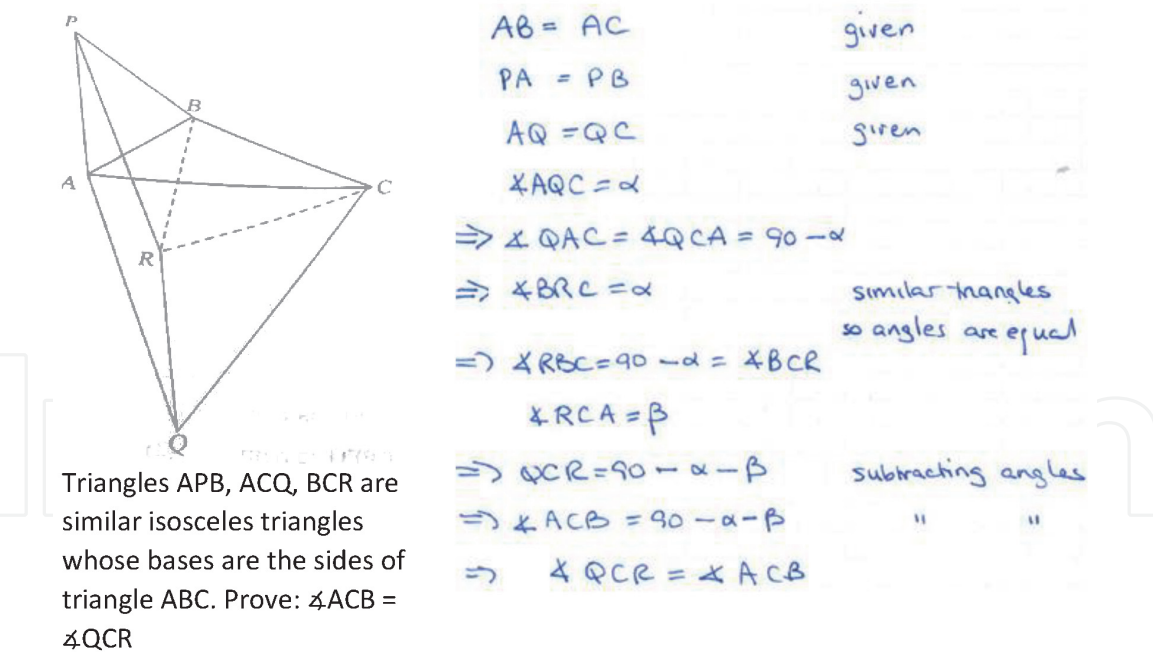 P
B
A
C
R
Q
Triangles APB, ACQ, BCR are
similar isosceles triangles
whose bases are the sides of
triangle ABC. Prove: ∡ACB =
∡QCR
AB = AC given
PA = PB given
AQ = QC given
∡AQC = α
⇒ ∡QAC = ∡QCA = 90 - α
⇒ ∡BRC = α similar triangles
so angles are equal
⇒ ∡RBC = 90 - α = ∡BCR
∡RCA = β
⇒ QCR = 90 - α - β subtracting angles
⇒ ∡ACB = 90 - α - β " "
⇒ ∡QCR = ∡ACB